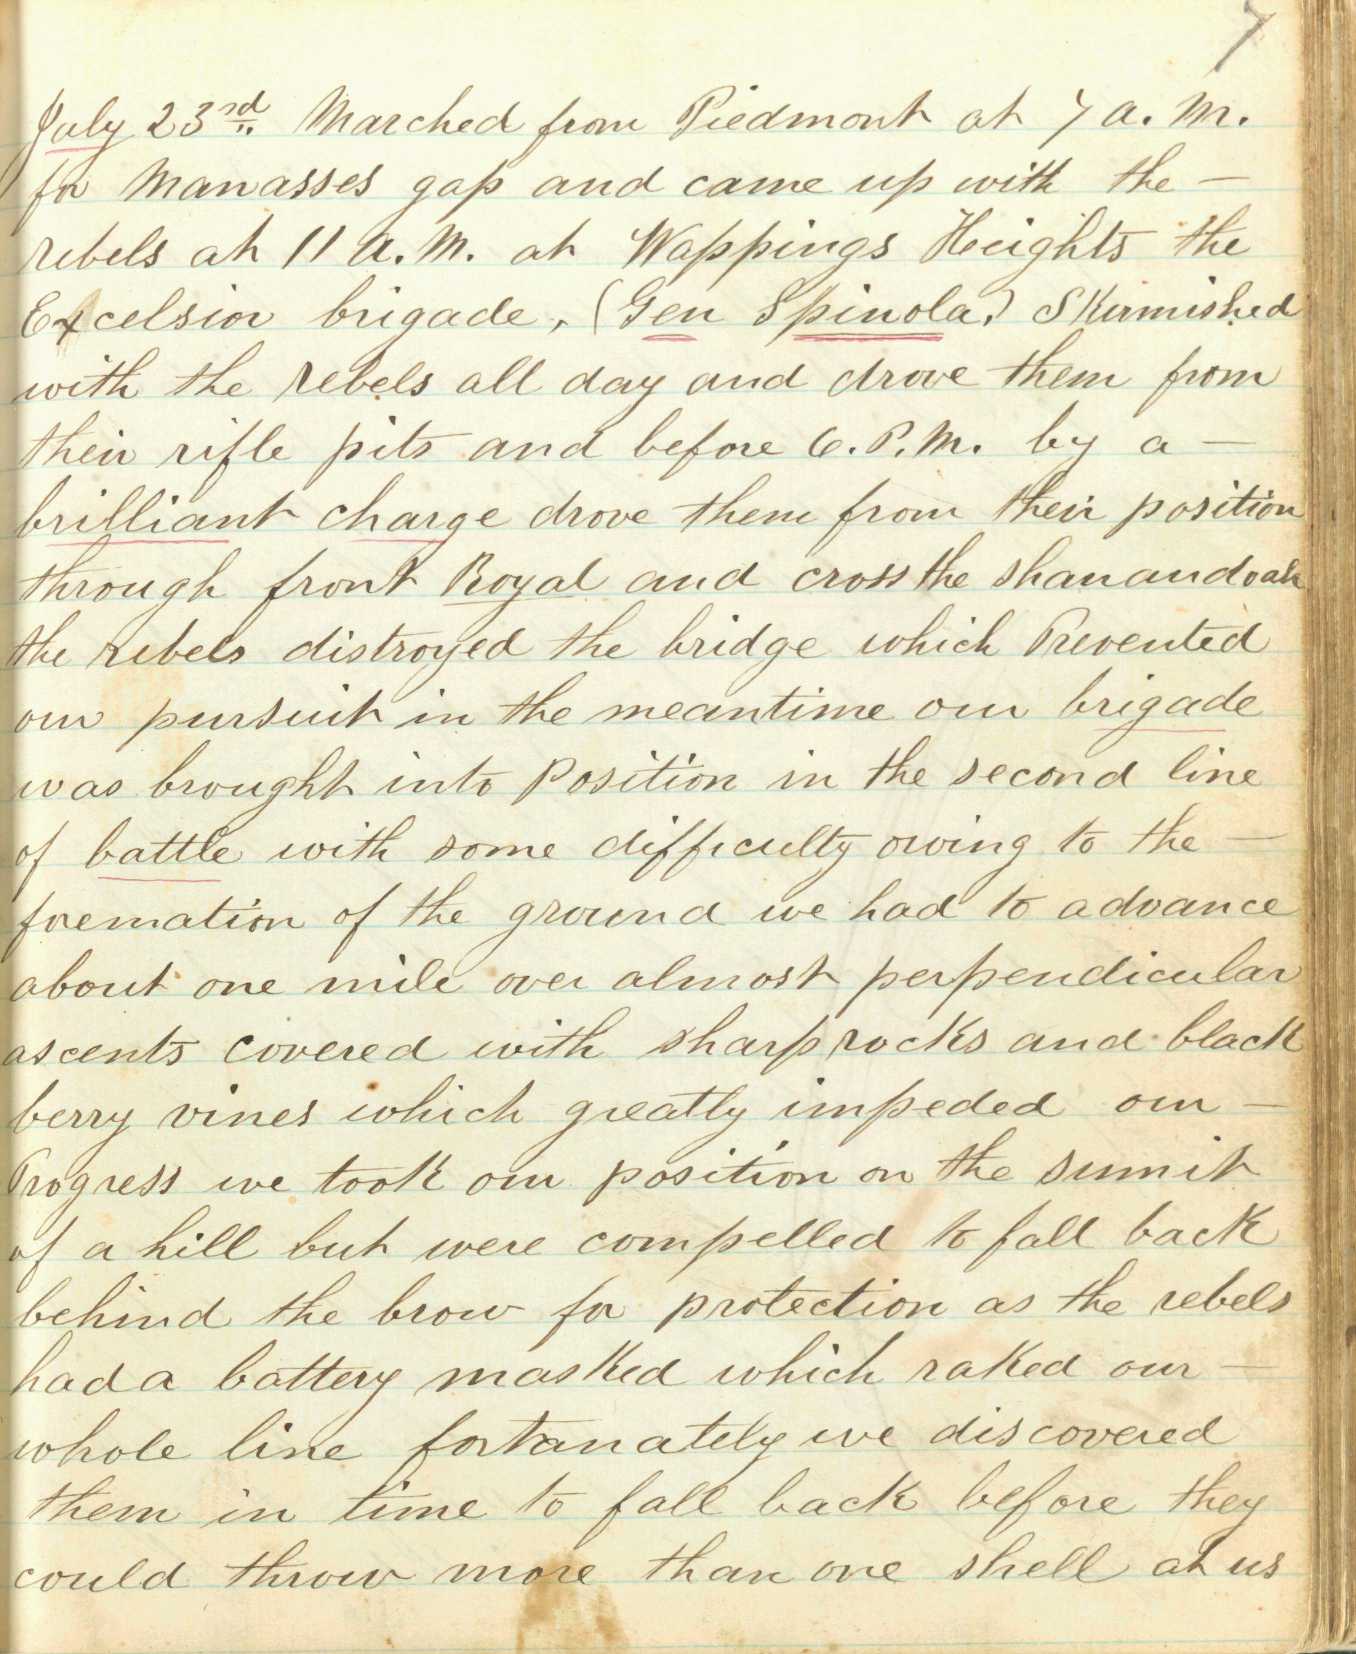 7
July 23rd Marched from Piedmont at 7 a. M.
for Manasses gap and came up with the —
rebels at 11 a. M. at Wappings Heights the
Excelsior brigade, (Gen Spinola) Skirmished
with the rebels all day and drove them from
their rifle pits and before 6. P. M. by a —
brilliant charge drove them from their position
through front Royal and cross the Shanandoah
the rebels distroyed the bridge which Prevented
our pursuit in the meantime our brigade
was brought into Position in the second line
of battle with some difficulty owing to the —
foremation of the ground we had to advance
about one mile over almost perpendicular
ascents covered with sharp rocks and black
berry vines which greatly impeded our —
Progress we took our position on the sumit
of a hill but were compelled to fall back
behind the brow for protection as the rebels
had a battery masked which raked our —
whole line fortanately we discovered
them in time to fall back before they
could throw more than one shell at us